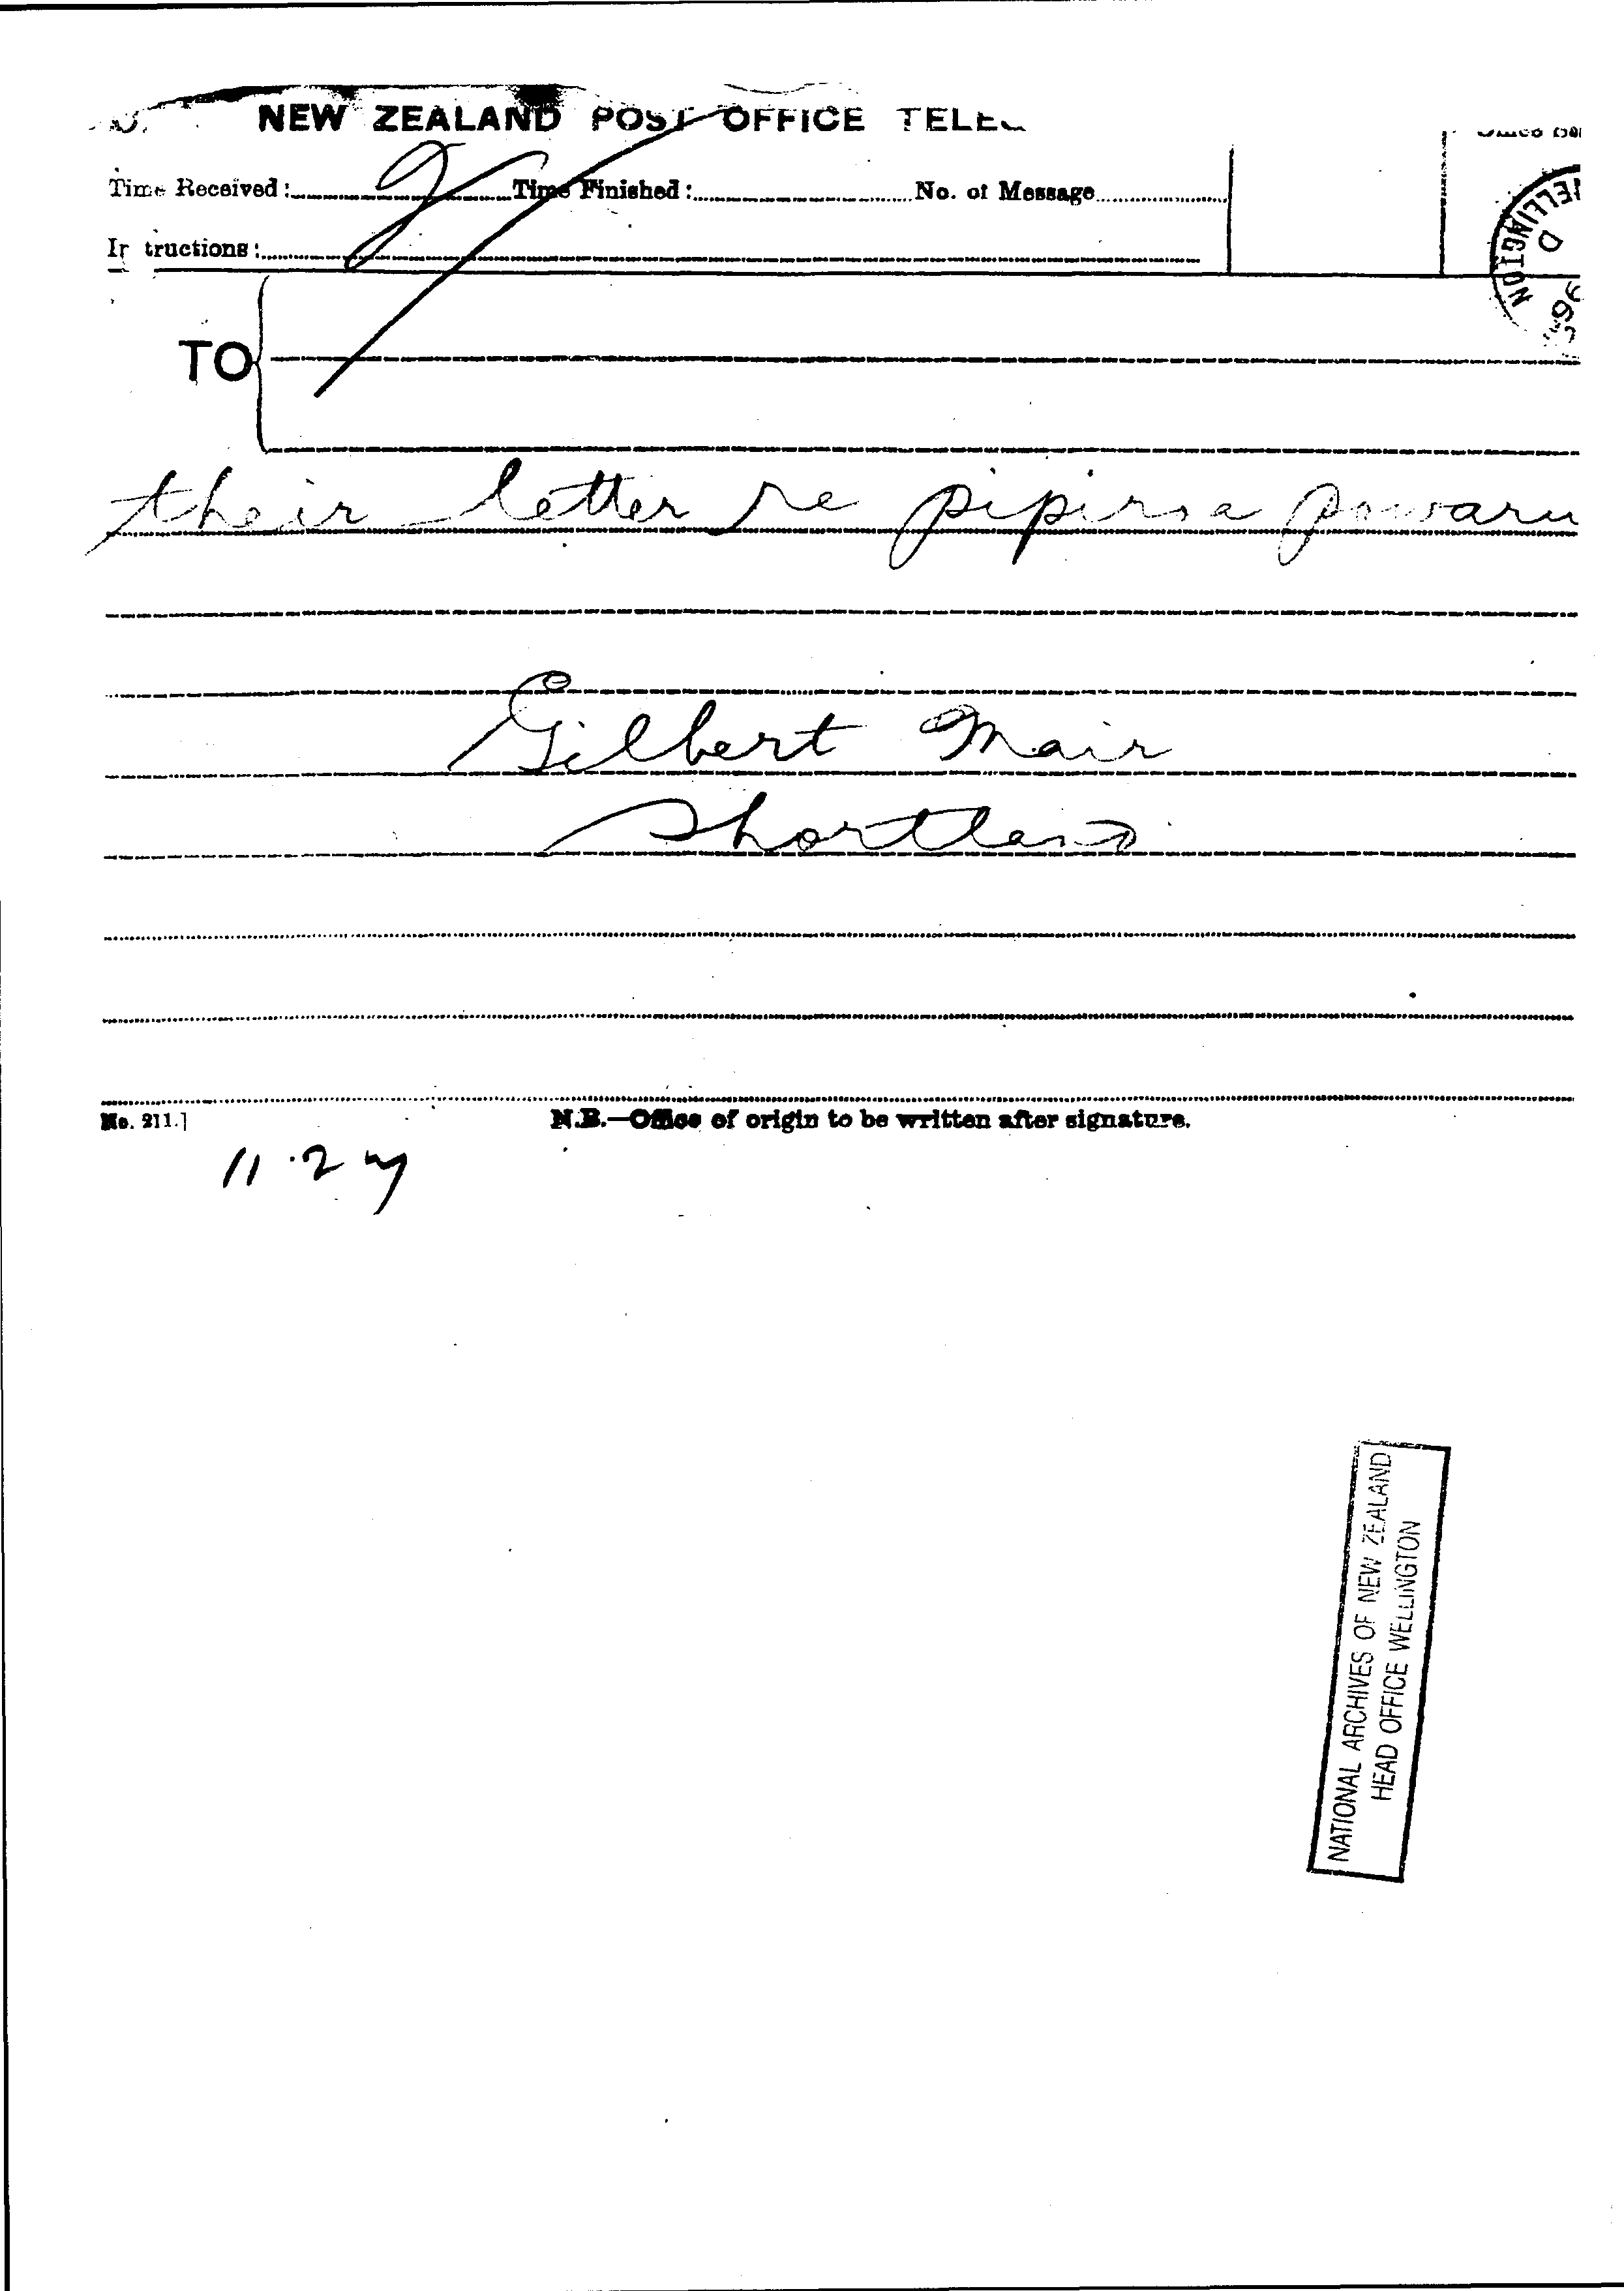 NEW ZEALAND POST OFFICE TELE
Time Received: Time Finished: No. of Message
2
In tructions:
WELLINGTON
D
TO
their letter re pipirsa pawaru
Gilbert Mair
Shortland
No. 211.] N.B.—Office of origin to be written after signature.
11.2
NATIONAL ARCHIVES OF NEW ZEALAND
HEAD OFFICE WELLINGTON